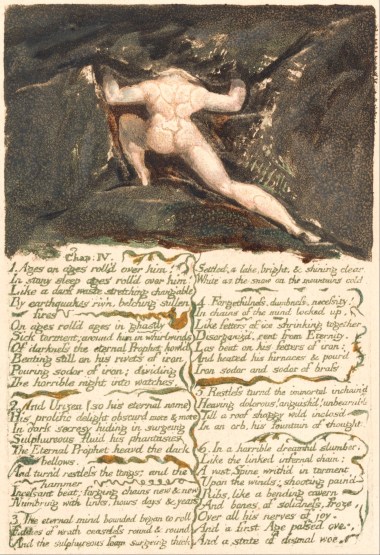 Chap: IV.
1. Ages on ages roll'd over him!
In stony sleep ages roll'd over him
Like a dark waste stretching chang'able
By earthquakes riv'n, belching sullen
fires
On ages roll'd ages in ghastly
Sick torment; around him in whirlwinds
Of darkness the eternal Prophet howl'd
Beating still on his rivets of iron
Pouring sodor of iron; dividing
The horrible night into watches.
2. And Urizen (so his eternal name)
His prolific delight obscurd more & more
In dark secresy hiding in surgeing
Sulphureous fluid his phantasies.
The Eternal Prophet heavd the dark
bellows,
And turnd restless the tongs; and the
hammer
Incessant beat; forging chains new & new
Numb'ring with links. hours, days & years
3. The eternal mind bounded began to roll
Eddies of wrath ceaseless round & round,
And the sulphureous foam surgeing thick
Settled, a lake, bright, & shining clear:
White as the snow on the mountains cold.
4. Forgetfulness, dumbness, necessity!
In chains of the mind locked up,
Like fetters of ice shrinking together
Disorganiz'd, rent from Eternity,
Los beat on his fetters of iron;
And heated his furnaces & pour'd
Iron sodor and sodor of brass
5. Restless turnd the immortal inchain'd
Heaving dolorous! anguish'd! unbearable
Till a roof shaggy wild inclos'd
In an orb, his fountain of thought.
6. In a horrible dreamful slumber;
Like the linked infernal chain;
A vast Spine writh'd in torment
Upon the winds; shooting pain'd
Ribs, like a bending cavern
And bones of solidness, froze
Over all his nerves of joy.
And a first Age passed over,
And a state of dismal woe.